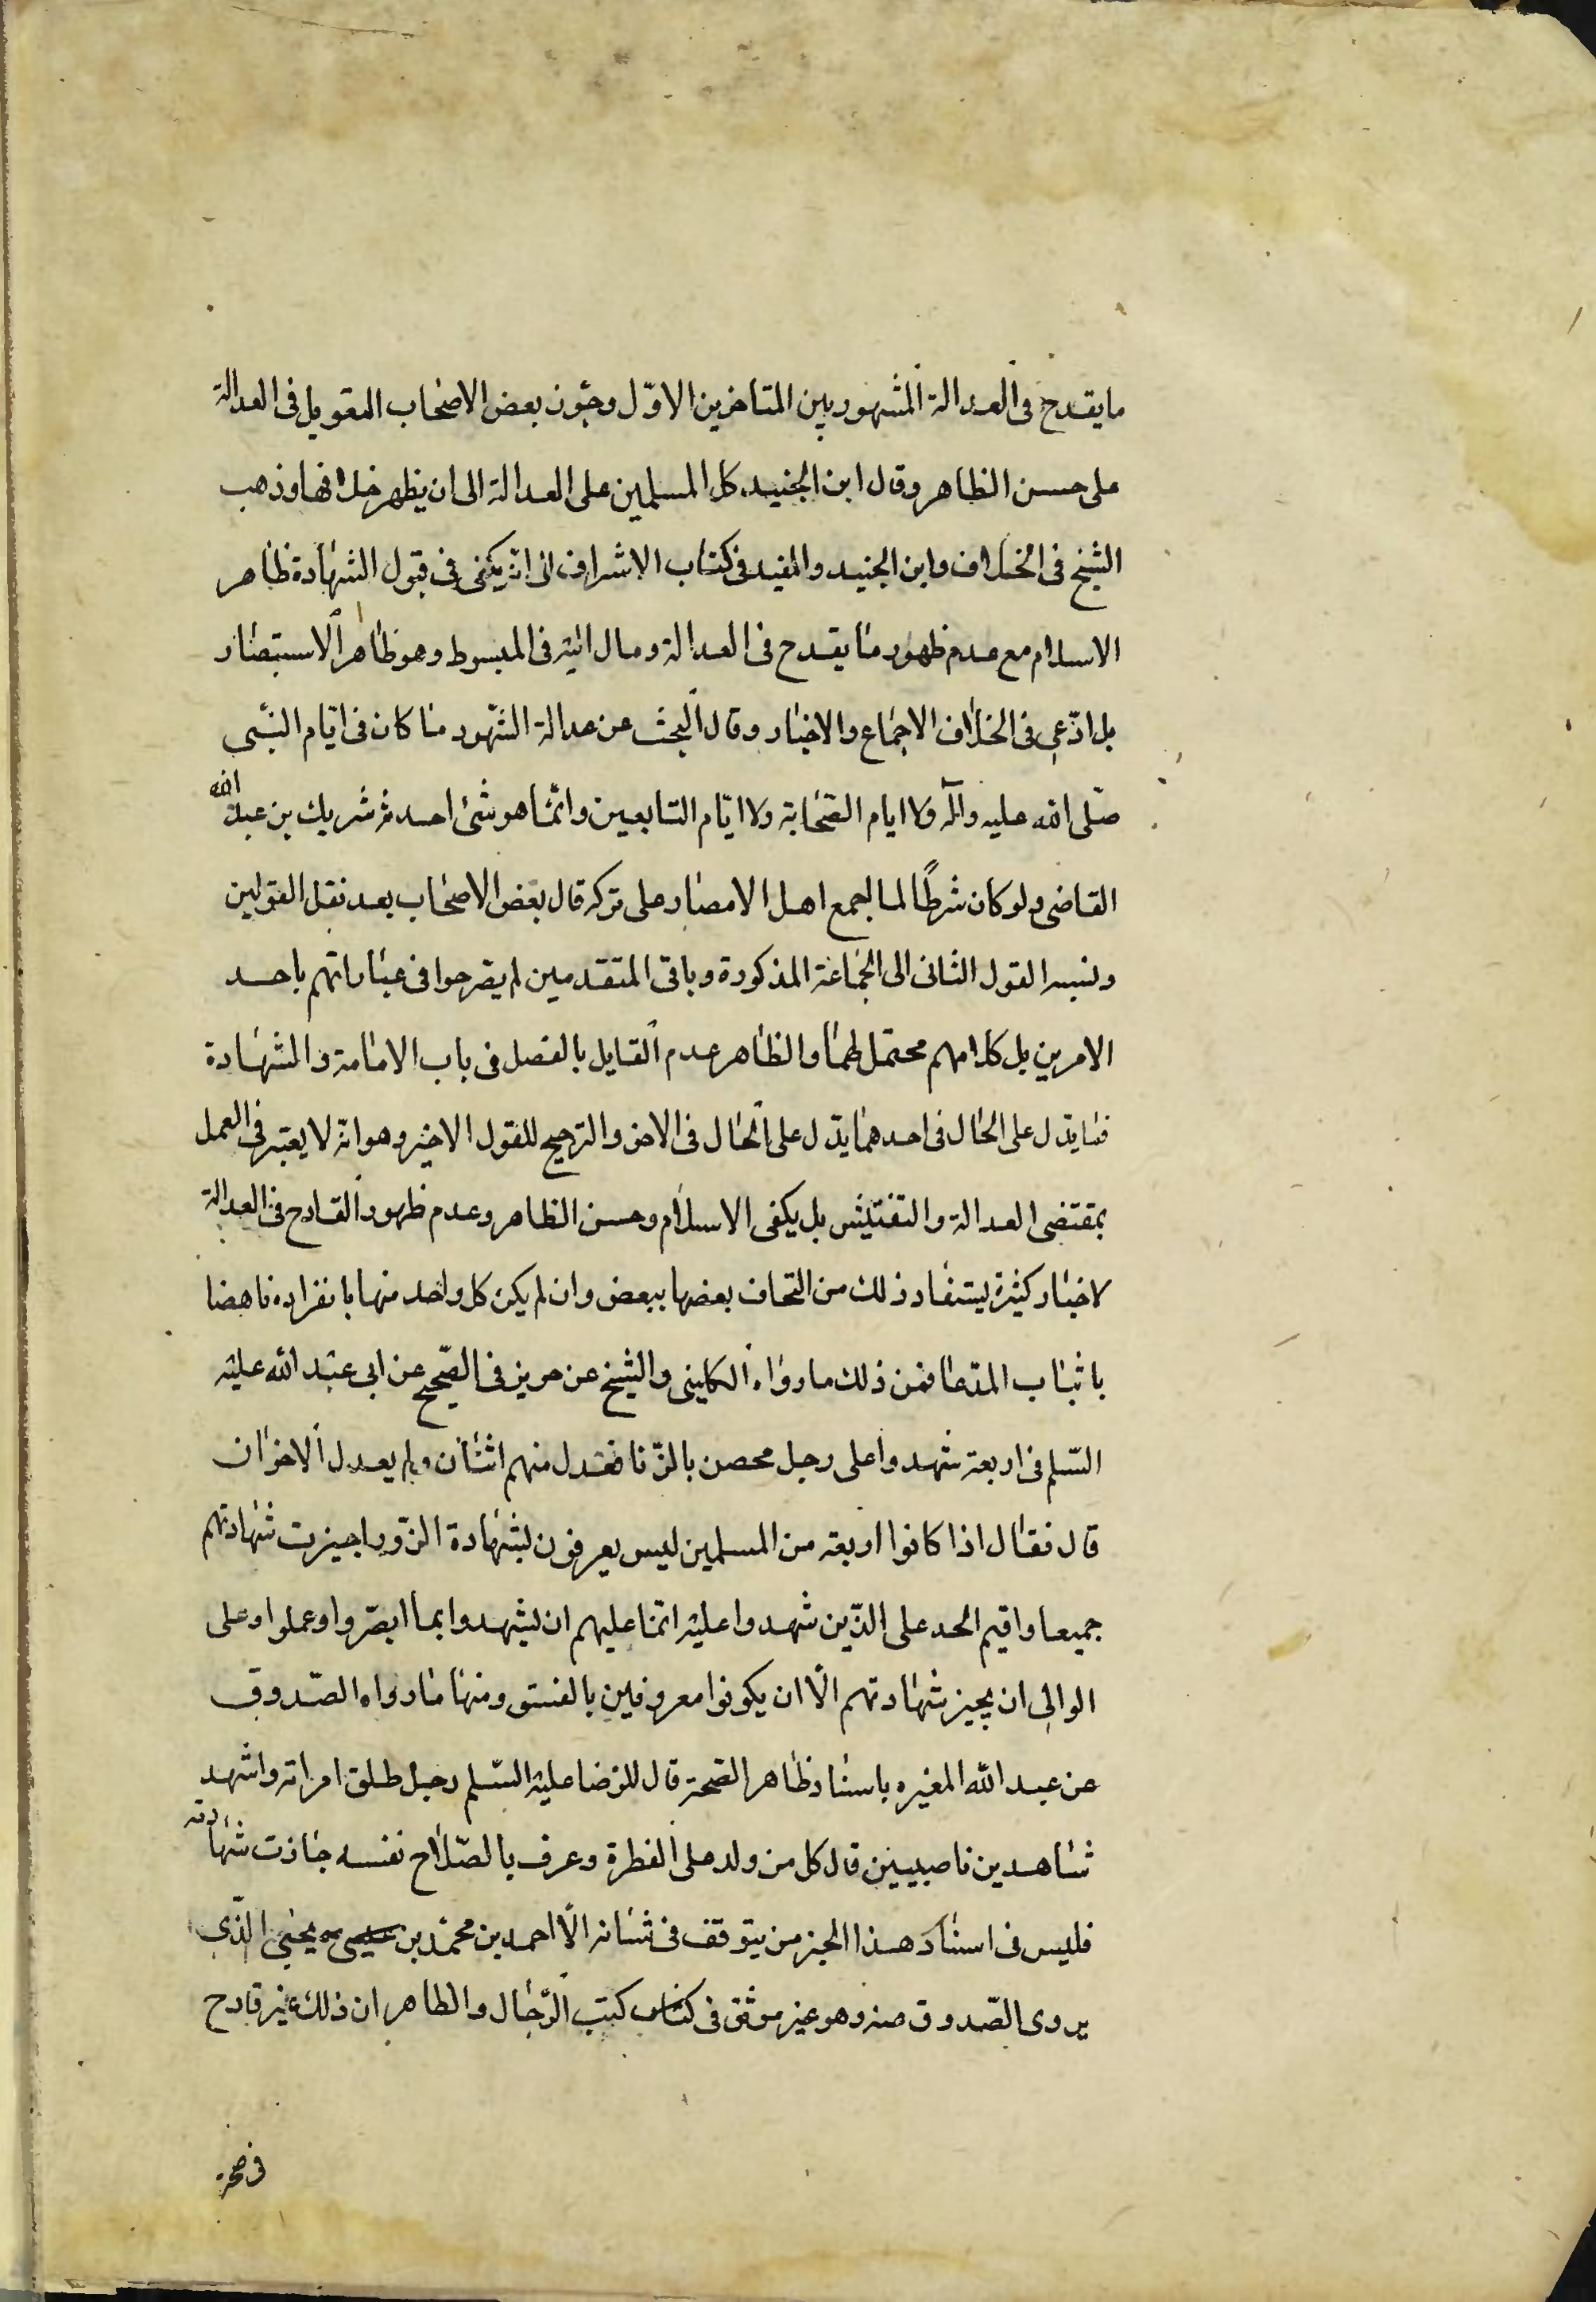 ما يقدح فى العدالة المشهور بين المتاخرين الاوّل وجوّز بعض الاصحاب التعويل فى العدالة
على حسن الظاهر وقال ابن الجنيد كل المسلمين على العدالة الى ان يظهر خلافها وذهب
الشيخ فى الخلاف وابن الجنيد والمفيد فى كتاب الاشراف الى انه يكفى فى قبول الشهادة ظاهر
الاسلام مع عدم ظهور ما يقدح فى العدالة ومال اليه فى المبسوط وهو ظاهر الاستبصار
بل ادّعى فى الخلاف الاجماع والاخبار وقال البحث عن عدالة الشهود ما كان فى ايّام النبى
صلى الله عليه واله ولا ايام الصّحابة ولا ايّام التابعين وانّما هو شئ احدثه شريك بن عبد الله
القاضى ولو كان شرطًا لما اجمع اهل الامصار على تركه قال بعض الاصحاب بعد نقل القولين
ونسبه القول الثانى الى الجماعة المذكورة وباقى المتقدمين لم يصرحوا فى عباراتهم باحد
الامرين بل كلامهم محتمل لهما والظاهر عدم القايل بالفصل فى باب الامامة والشهادة
فما يدل على الحال فى احدهما يدّل على الحال فى الاخر والترجيح للقول الاخير وهو انه لا يعتبر فى العمل
بمقتضى العدالة والتفتيش بل يكفى الاسلام وحسن الظاهر وعدم ظهور القادح فى العدالة
لاخبار كثيرة يستفاد ذلك من التحاف بعضها ببعض وان لم يكن كل واحد منها بانفراده ناهضا
باثبات المدّعا فمن ذلك ما رواه الكلينى والشيخ عن حريز فى الصّحيح عن ابى عبد الله عليه
السّلم فى اربعة شهدوا على رجل محصن بالزّنا فعدل منهم اثنان ولم يعدل الاخران
قال فقال اذا كانوا اربعة من المسلمين ليس يعرفون بشهادة الزّور اجيزت شهادتهم
جميعا واقيم الحد على الذّين شهدوا عليه انما عليهم ان يشهدوا بما ابصروا وعملوا وعلى
الوالى ان يجيز شهادتهم الّا ان يكونوا معروفين بالفسق ومنها ما رواه الصّدوق
عن عبد الله المغيره باسناد ظاهر الصّحة قال للرّضا عليه السّلم رجل طلق امراته واشهد
شاهدين ناصبيين قال كل من ولد على الفطرة وعرف بالصّلاح نفسه جازت شهادته
فليس فى اسناد هذا الخبر من يتوقف فى شانه الّا احمد بن محمّد بن عيسى يحيى الذّى
يروى الصّدوق عنه وهو غير موثق فى كتاب كتب الرّجال والظاهر ان ذلك غير قادح
فى صحة